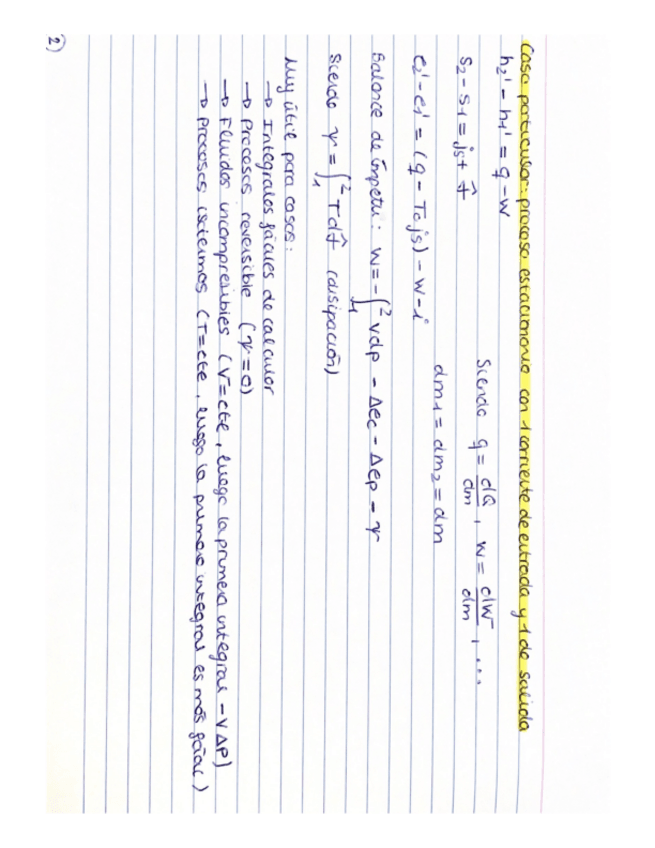 Caso particular: proceso estacionario con 1 corriente de entrada y 1 de salida
h2' - h1' = q - w
Siendo q = dQ/dm, w = dW/dm, ...
s2 - s1 = js + σ̂
dm1 = dm2 = dm
e2' - e1' = (q - T0 js) - w - i
Balance de ímpetu: w = -∫₁² vdp - Δec - Δep - Ψ
Siendo Ψ = ∫₁² Tdσ̂ (disipación)
Muy útil para casos:
→ Integrales fáciles de calcular
→ Procesos reversible (Ψ=0)
→ Fluidos incompresibles (V=cte, luego la primera integral - VΔP)
→ Procesos isotermos (T=cte, luego la primera integral es más fácil)
2)